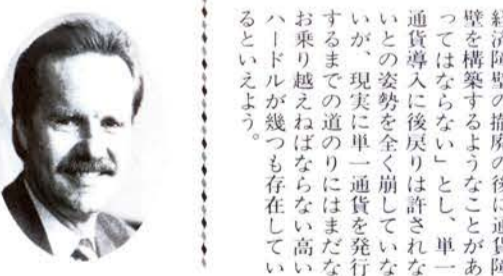 経済障壁の撤廃の後に通貨障
壁を構築するようなことがあ
ってはならない」とし、単一
通貨導入に後戻りは許されな
いとの姿勢を全く崩していな
いが、現実に単一通貨を発行
するまでの道のりにはまだな
お乗り越えねばならない高い
ハードルが幾つも存在してい
るといえよう。